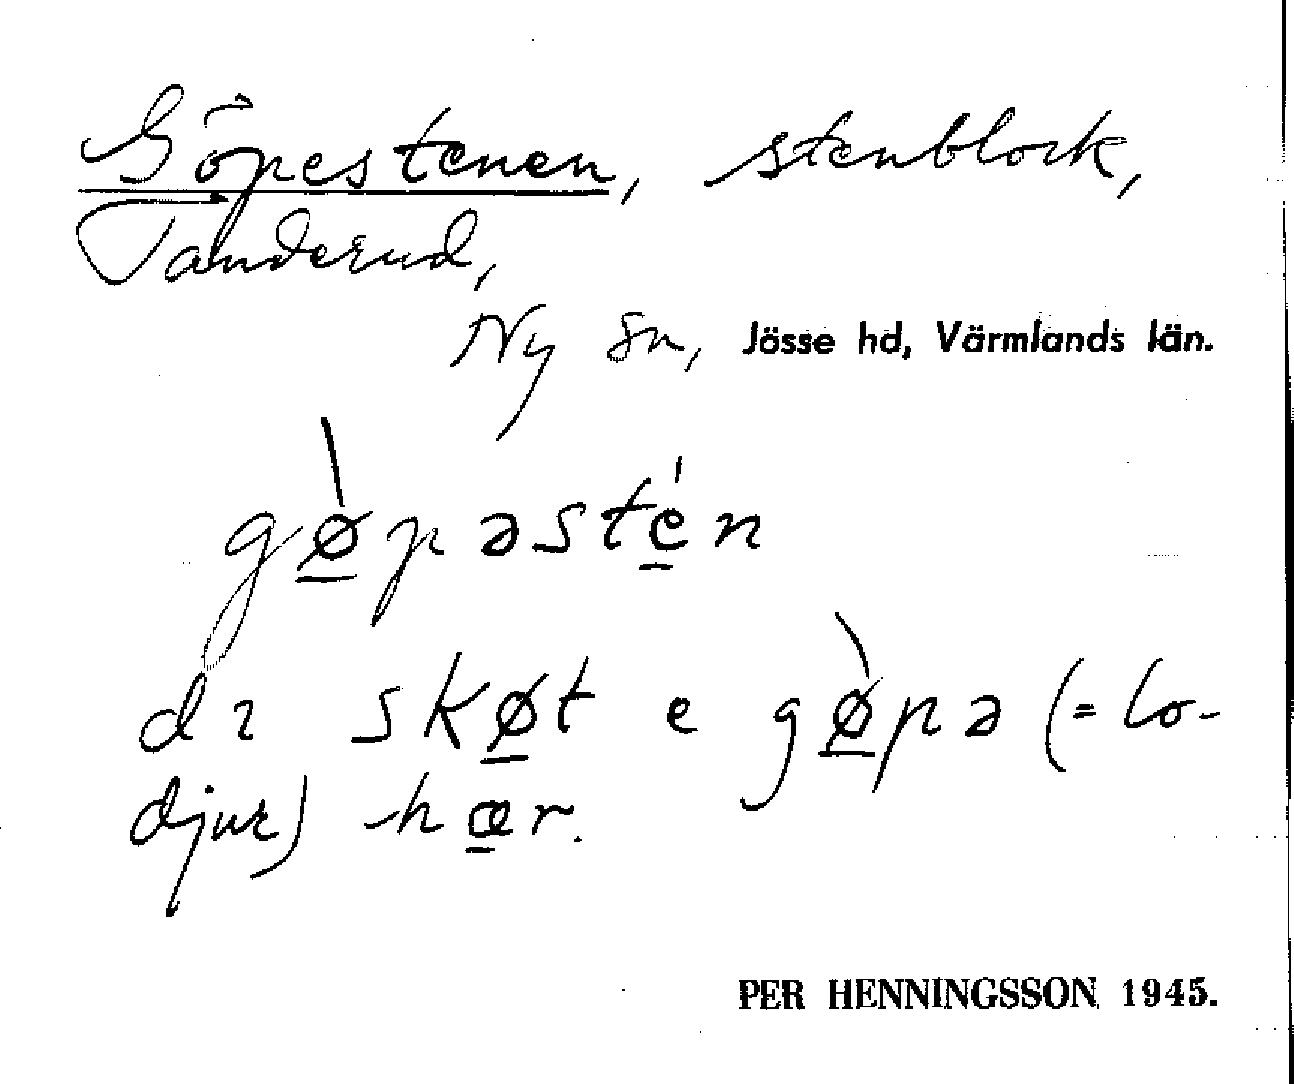 Göpestenen, stenblock,
Tanderud,
Ny sn, Jösse hd, Värmlands län.
gø̀pəstén
dɪ skøt e gø̀pə (= lo-
djur) hær.
PER HENNINGSSON 1945.